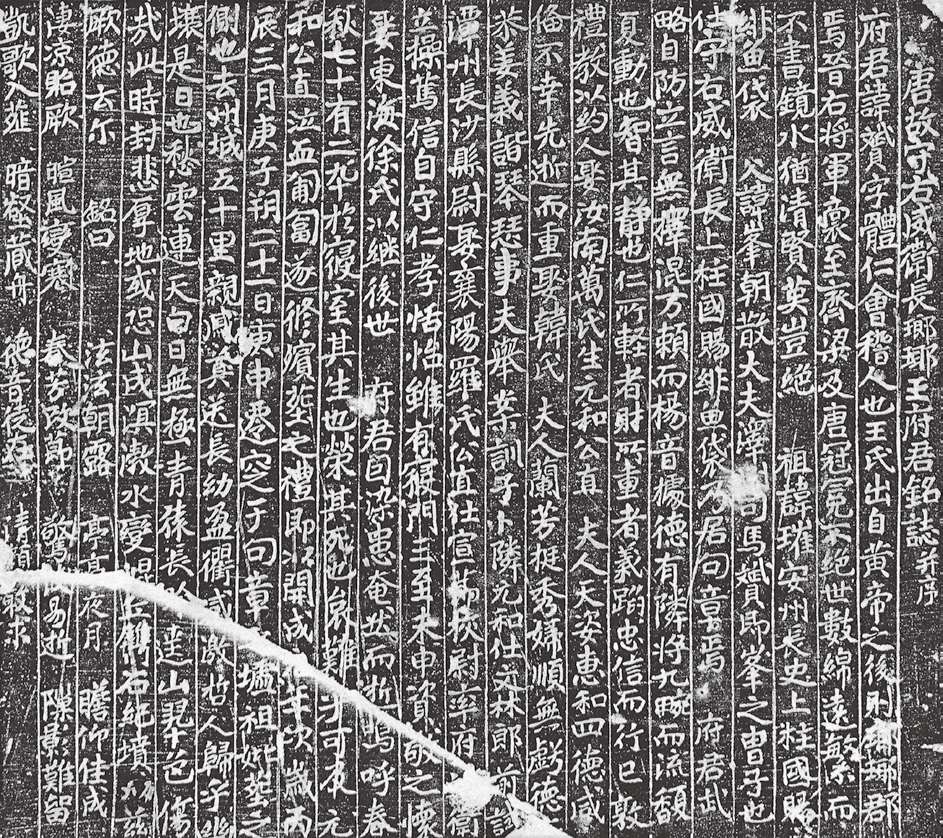 唐故守右威衛長瑯琊王府君銘誌并序
府君諱贇字體仁會稽人也王氏出自黃帝之後則瑯琊郡
焉晉右將軍裔至齊梁及唐冠冕不絕世數綿遠繁而
不書鏡水猶清賢英豈絕 祖諱璀安州長史上柱國賜
緋魚袋 父諱峯朝散大夫澤州司馬贇即峯之曾子也
仕守右威衛長上柱國賜緋魚袋 居句章焉 府君武
略自防立言無擇混方賴而楊音據德有隣將九畹而流馥
夏動也智其靜也仁所輕者財所重者義蹈忠信而行已敦
禮教以約人娶汝南萬氏生元和公直 夫人天姿惠和四德咸
俻不幸先逝而重娶韓氏 夫人蘭芳挺秀婦順無虧德
恭姜義諧琴瑟事夫舉案訓子卜隣元和仕文林郎前
潭州長沙縣尉娶襄陽羅氏公直仕宣 校尉率府衛
立操篤信自守仁孝恬怡雖有寢門三至未申資敬之懷
娶東海徐氏以繼後世 府君因染患奄然而逝嗚呼春
秋七十有二卒於寢室其生也榮其死也哀難 可反元
和公直泣血匍匐遂修殯葬之禮即以開成 年次歲丙
辰三月庚子朔二十一日庚申遷窆于句章 墟祖妣塋之
側也去州城五十里親戚奠送長幼盈衢咸 哲人歸乎幽
壤是日也愁雲連天白日無極青猿長吟 山羿色傷
哉此時封悲厚地或恐山成溟漵水變 丘鐫石紀墳 茲
厥德云尒 銘曰 泫泫朝露 亭亭夜月 瞻仰佳成
淒涼貽厥 暄風變寒 春芳改節 驚 易逝 隙影難留
凱歌入薤 暗 藏舟 德音 在 清 求